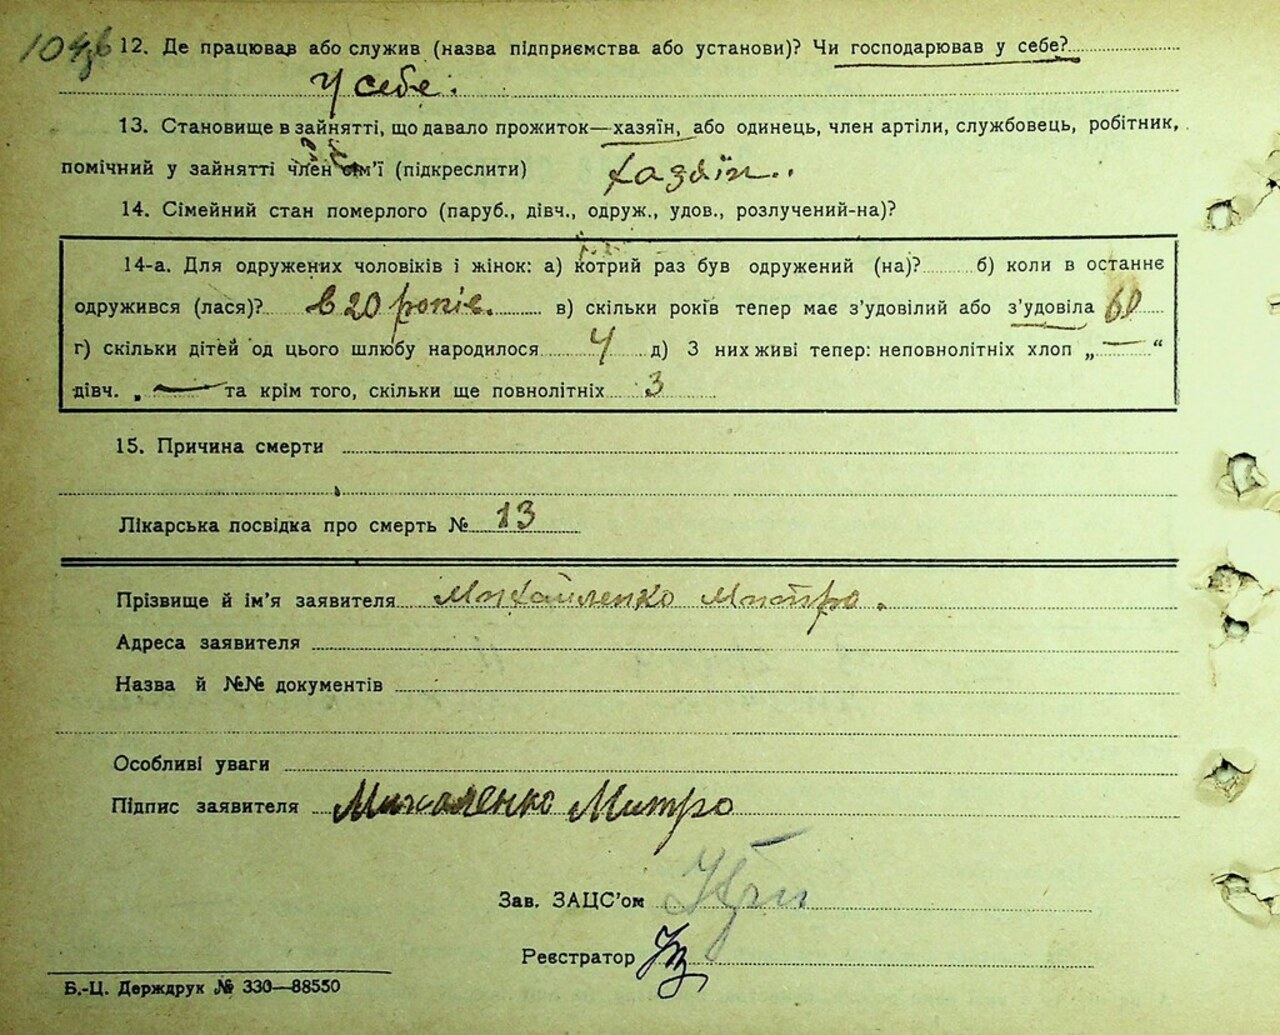 104зв
12. Де працював або служив (назва підприємства або установи)? Чи господарював у себе?
У себе.
13. Становище в зайнятті, що давало прожиток—хазяїн, або одинець, член артіли, службовець, робітник,
помічний у зайнятті член сім’ї (підкреслити) хазяїн..
14. Сімейний стан померлого (паруб., дівч., одруж., удов., розлучений-на)?
14-а. Для одружених чоловіків і жінок: а) котрий раз був одружений (на)? б) коли в останнє
одружився (лася)? в 20 років. в) скільки років тепер має з’удовілий або з’удовіла 60
г) скільки дітей од цього шлюбу народилося 4 д) З них живі тепер: неповнолітніх хлоп „ — “
дівч. „ — та крім того, скільки ще повнолітніх 3
15. Причина смерти
Лікарська посвідка про смерть № 13
Прізвище й ім’я заявителя Михайленко Митро.
Адреса заявителя
Назва й №№ документів
Особливі уваги
Підпис заявителя Михаленко Митро
Зав. ЗАЦС’ом
Реєстратор
Б.-Ц. Держдрук № 330—88550